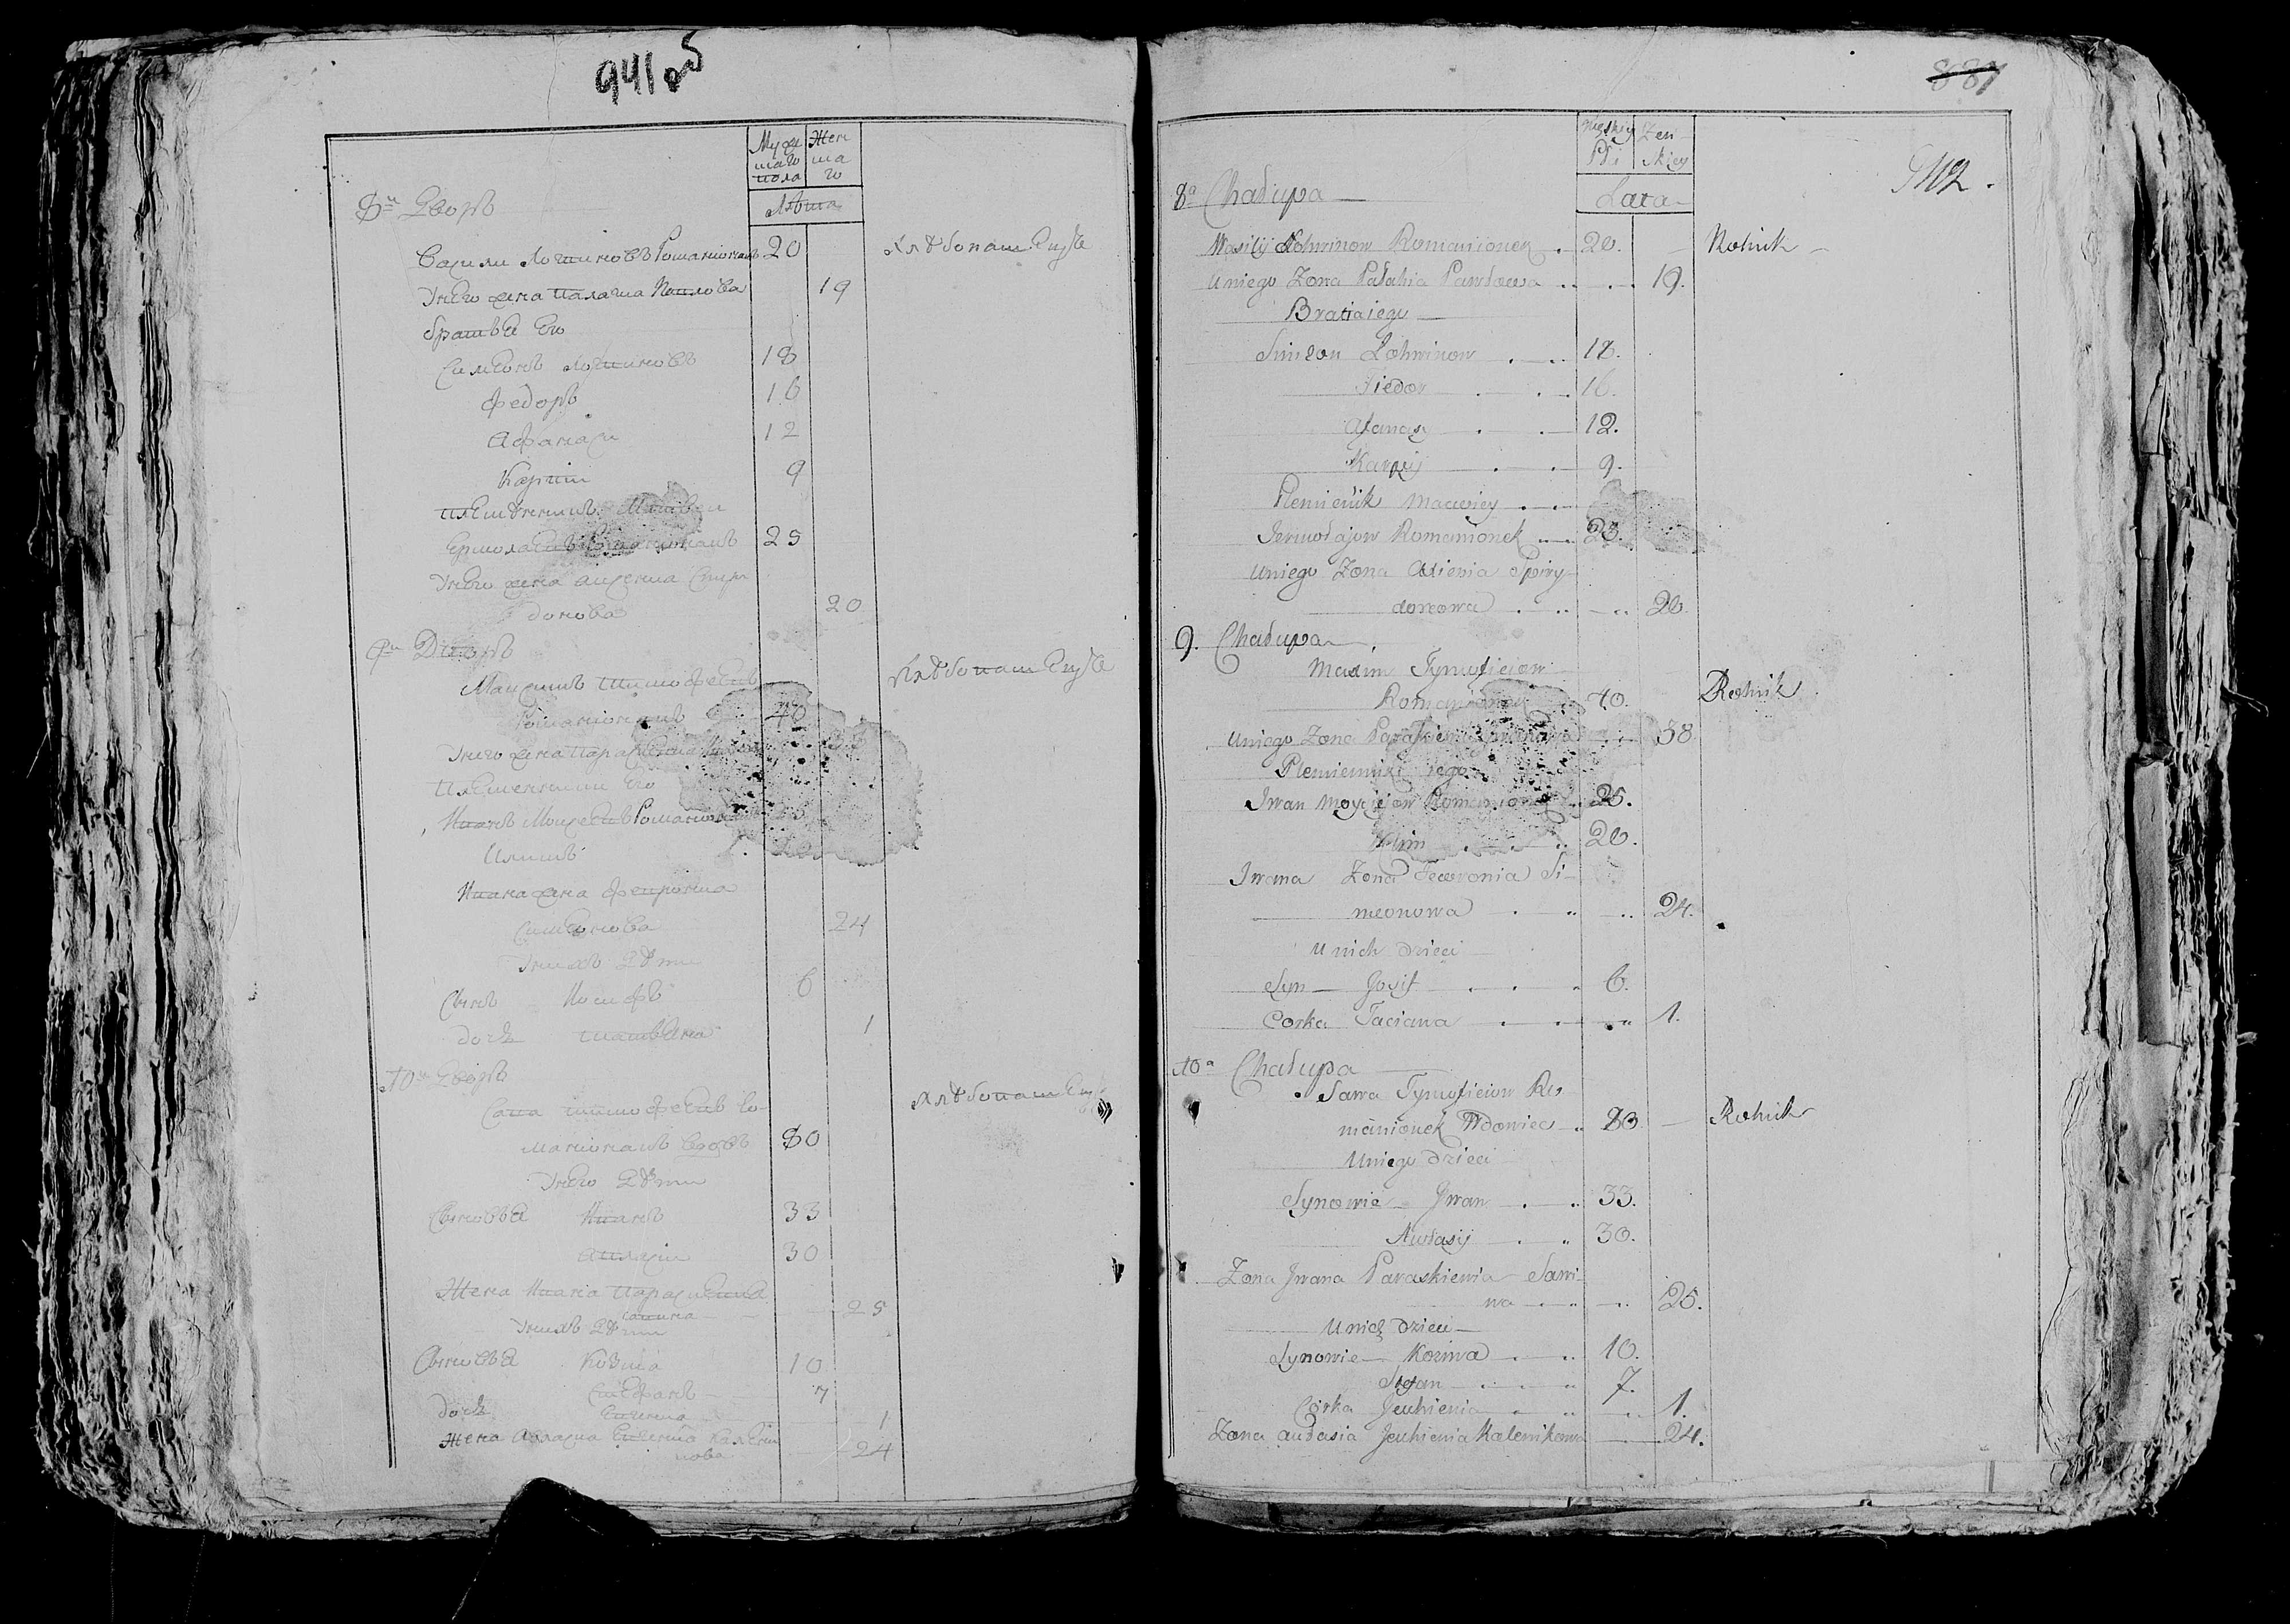 941 об
Мужеска пола
Женска го
Лѣта
8й Дворъ
Васили Логиновъ Романионакъ 20
У него жена Палагиа Павлова 19
Хлѣбопашецъ
братья его
Симеонъ Логиновъ 18
Федоръ 16
Афанаси 12
Карпии 9
племѣнникъ Матвеи
Ермолаевъ Романионакъ 25
У него жена Аксениа Спири
донова 20
9й Дворъ
Хлѣбопашецъ
Максимъ Тимофеевъ
Романионакъ 40
У него жена Параскевиа
Племенники его
Иванъ Моисеевъ Романионакъ
Климъ
Ивана жена Феврониа
Симеонова 24
У нихъ дѣти
Сынъ Иосифъ 6
Дочь Татьяна 1
10й Дворъ
Хлѣбопашецъ
Сава Тимофеевъ Ро-
манионакъ вдовъ 80
У него дѣти
Сыновья Иванъ 33
Авласи 30
Жена Ивана Параскевиа 25
Савина
У нихъ дѣти
Сыновья Козма 10
Стефанъ 7
Дочь Евгениа 1
Жена Авласиа Евгениа Калени
кова 24
887
942.
Męskiey Płci
Żen skiey
Lata
8a Chałupa
Wasilij Łohwinow Romanionek 20. Rolnik
U niego Żona Pałahia Pawłowa 19.
Bratia iego
Simeon Łohwinow 18.
Fiedor 16.
Afanasy 12.
Karpij 9.
Plemienik Maciey
Jermołajow Romanionek 25.
U niego Żona Axienia Spiry-
donowa 20
9. Chałupa
Maxim Tymofieiow
Romanionek 40. Rolnik
U niego Żona Paraskiewia 38
Plemienniki iego
Iwan Moysiejow Romanionek 25.
Klim 20.
Iwana Żona Fewronia Si-
meonowa 24.
U nich dzieci
Syn Josif 6.
Corka Taciana 1.
10a Chałupa
Sawa Tymofieiow Ro
manionek Wdowiec 80 Rolnik
U niego dzieci
Synowie Iwan 33.
Awłasij 30.
Żona Iwana Paraskiewia Sawi-
na 25.
U nich dzieci
Synowie Kozma 10.
Stefan 7.
Córka Jeuhienia 1.
Żona Aułasia Jeuhienia Kalenikowa 24.